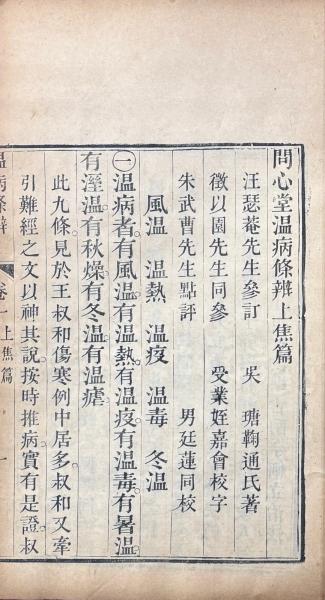 問心堂温病條辨上焦篇
汪瑟菴先生參訂 吳瑭鞠通氏著
徵以園先生同參 受業姪嘉會校字
朱武曹先生點評 男廷蓮同校
風温 温熱 温疫 温毒 冬温
㊀温病者有風温有温熱有温疫有温毒有暑温
有溼温有秋燥有冬温有温瘧
此九條見於王叔和傷寒例中居多叔和又牽
引難經之文以神其說按時推病實有是證叔
温病條辨 卷一上焦篇 一